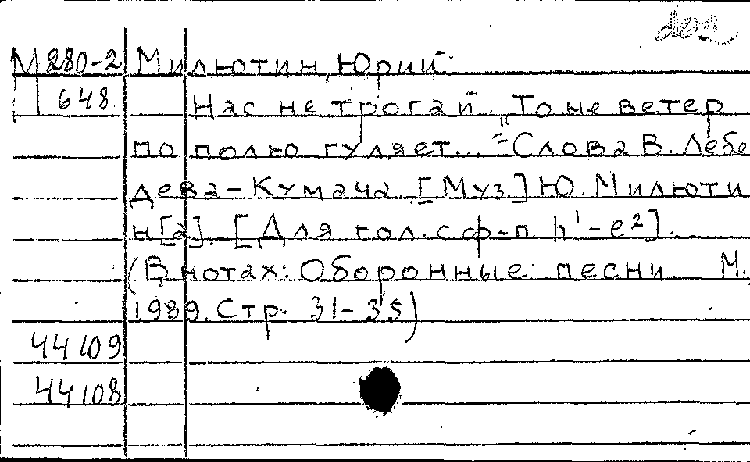 М 280-2 Милютин, Юрий.
648 Нас не трогай. "То не ветер
по полю гуляет..." Слова В. Лебе
дева-Кумача. [Муз.] Ю. Милюти
н[а]. [Для гол. с ф-п. h¹-e²].
(В нотах: Оборонные песни М.,
1989. Стр. 31-35)
44109
44108